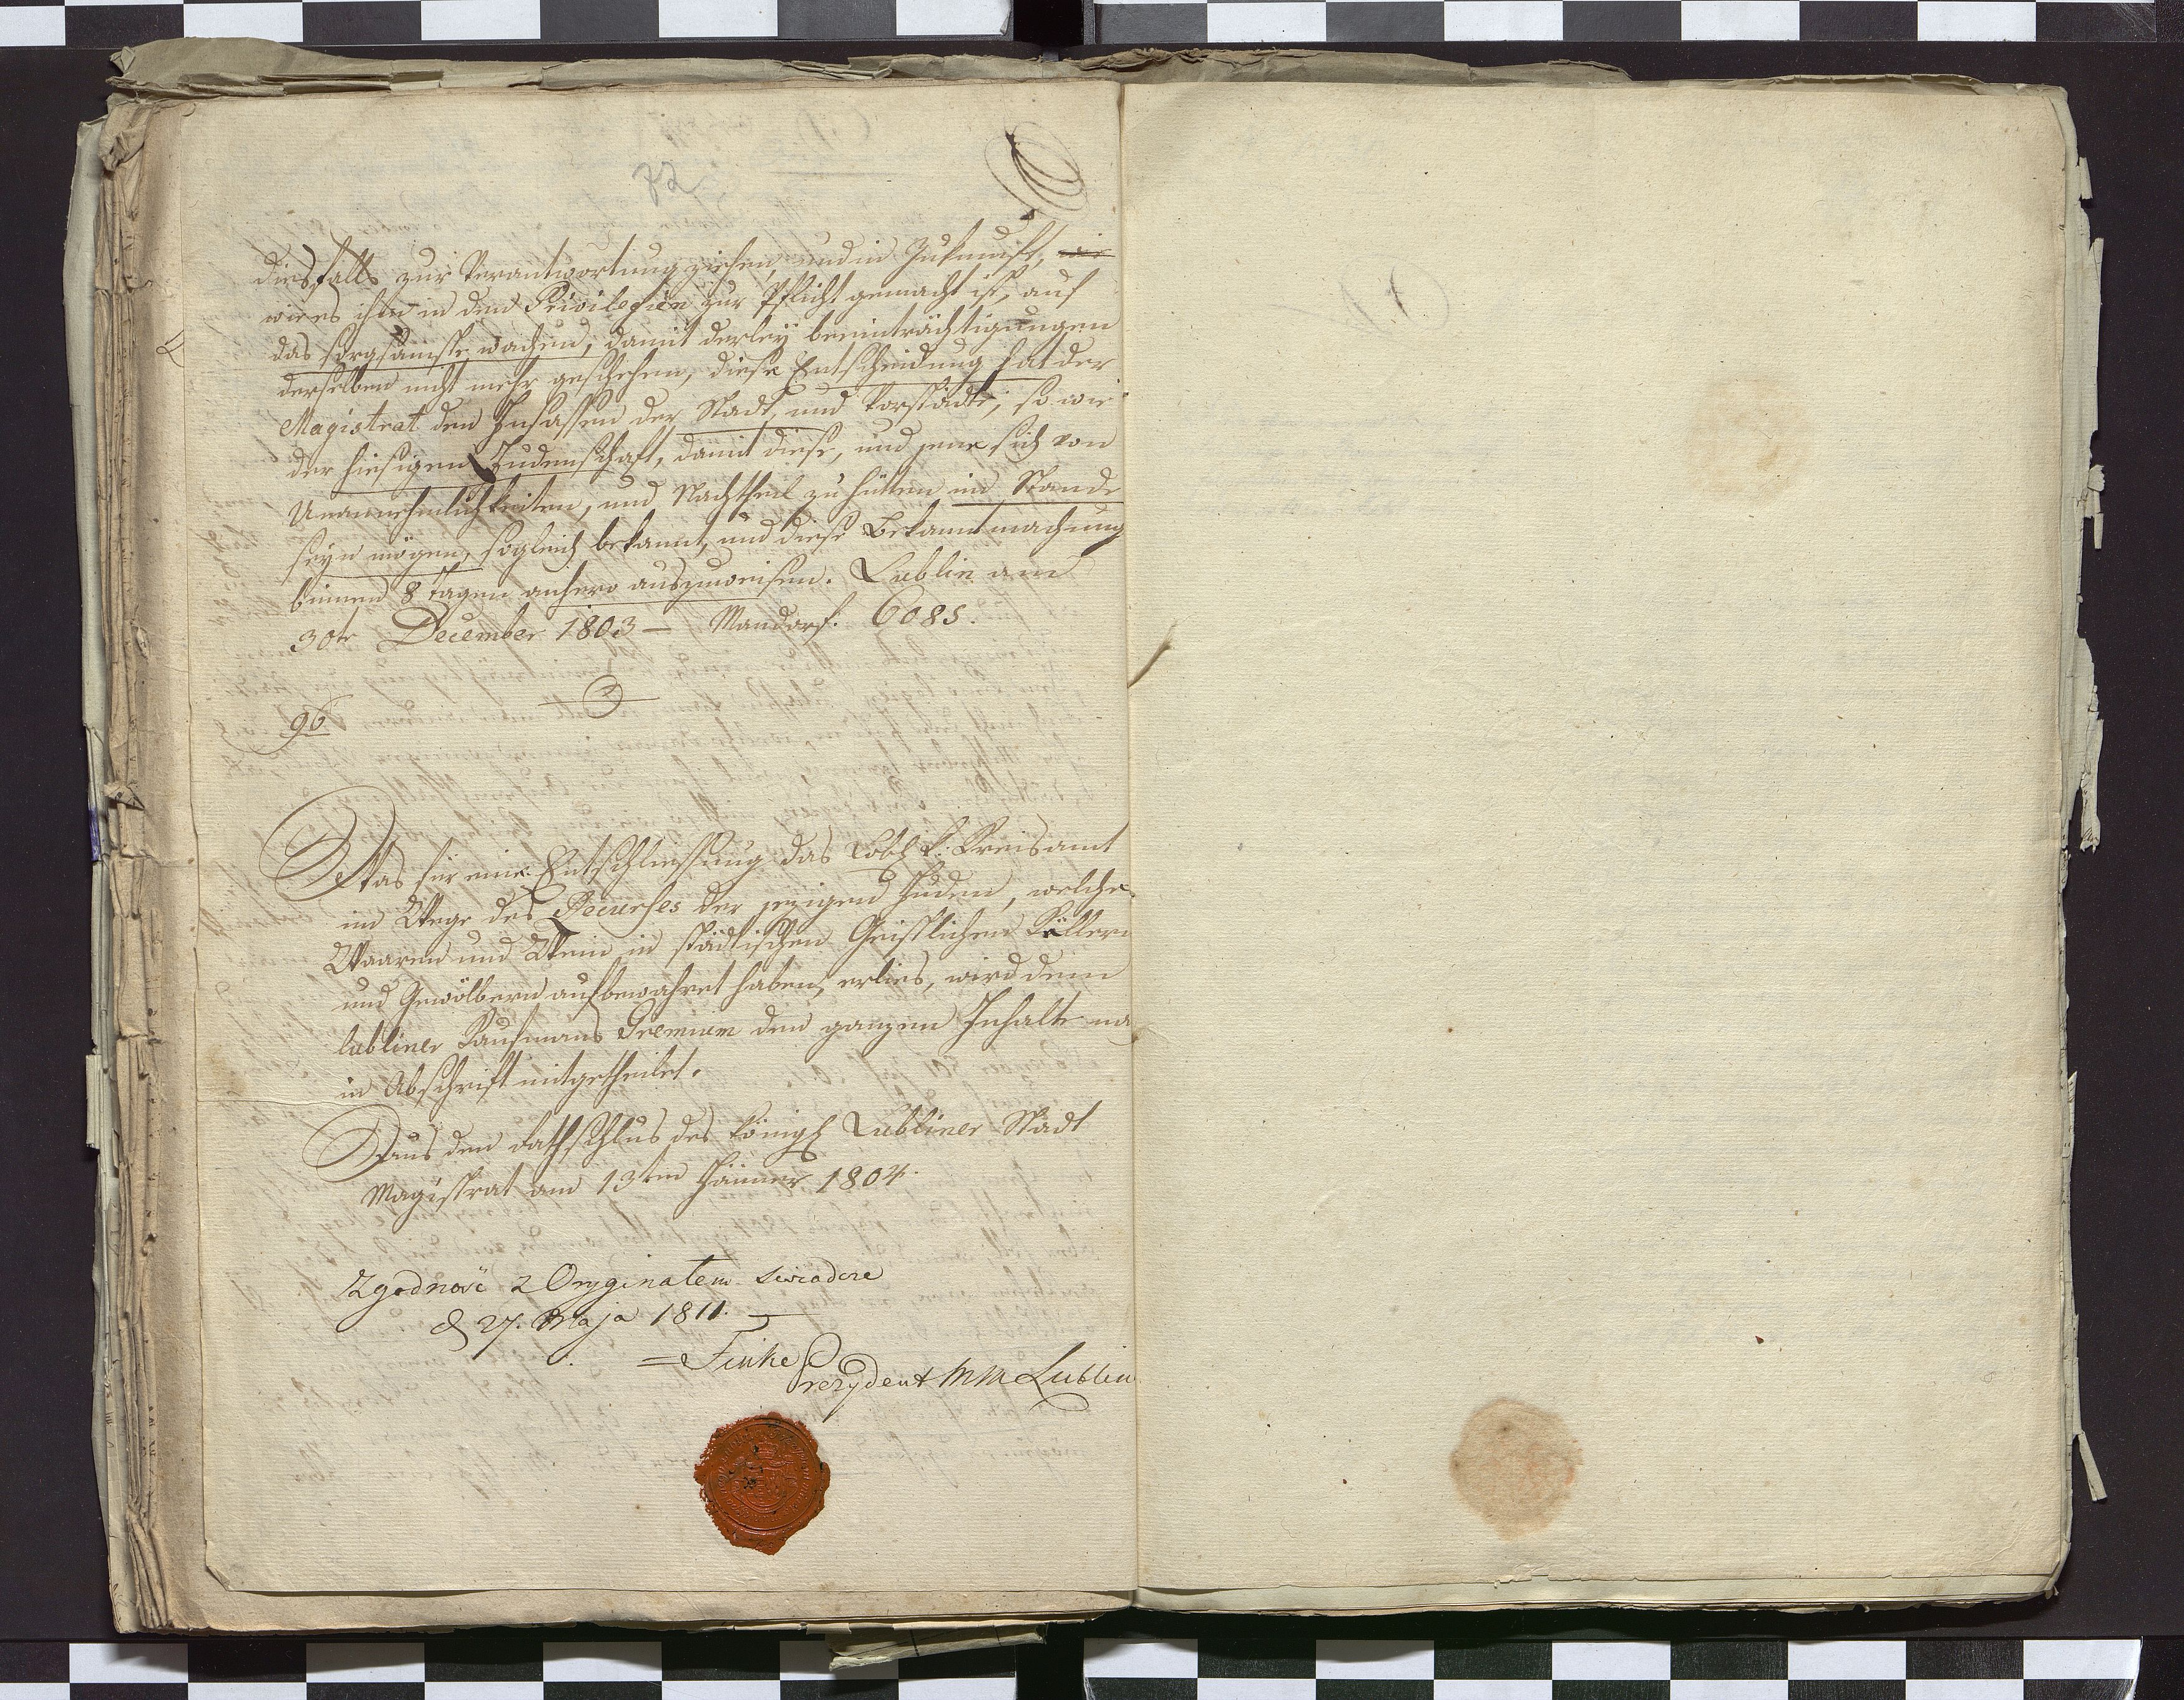 72
diesfalls zur Verantwortung ziehen, und in Zukunft, wie
wie es ihm in den Privilegien zur Pflicht gemacht ist, auf
das sorgsamste wachen, damit derley beeinträchtigungen
derselben nicht mehr geschehen, diese Entscheidung hat der
Magistrat den Insassen der Stadt, und Vorstädte, so wie
der hiesigen Judenschaft, damit diese, und jene sich von
Unannehmlichkeiten, und Nachtheil zu hütten im Stande
seyn mögen, sogleich bekannt, und diese Bekanntmachung
binnen 8 Tagen anhero auszuweisen. Lublin am
30te December 1803 — Mandorf. 6085.
96
Was für eine Entschliessung das Löbl. k. Kreisamt
im Wege des Recurses der jezigen Juden, welche
Waaren und Wein in städtischen Geistlichen Kellern
und Gewölbern aufbewahret haben, erlies, wird dem
lubliner Kaufmans Gremium den ganzen Inhalte na
in Abschrift mitgetheilet.
Aus dem Rathschlus des königl Lubliner Stadt
Magistrat am 13ten Jänner 1804.
Zgodność z Oryginałem świadczę
d 27. Maja 1811.
Finke
Prezydent M M Lublin